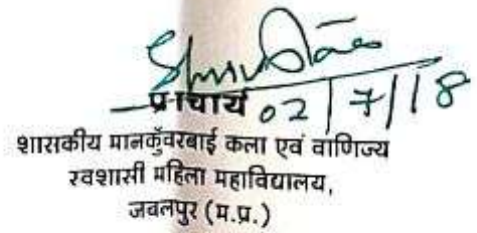 प्राचार्य 02/7/18
शासकीय मानकुँवरबाई कला एवं वाणिज्य
स्वशासी महिला महाविद्यालय,
जबलपुर (म.प्र.)